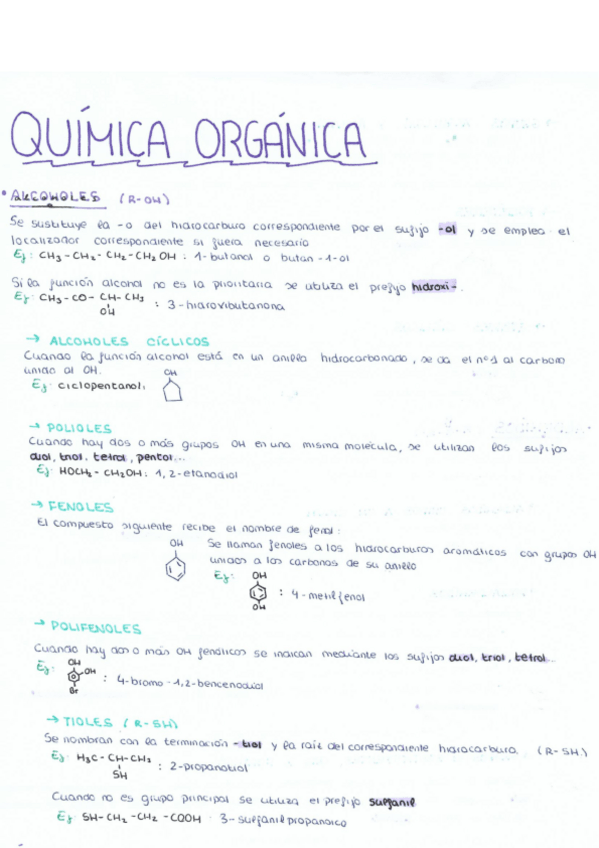 QUÍMICA ORGÁNICA
• ALCOHOLES (R-OH)
Se sustituye la -o del hidrocarburo correspondiente por el sufijo -ol y se emplea el
localizador correspondiente si fuera necesario
Ej: CH3 - CH2 - CH2 - CH2 OH : 1-butanol o butan-1-ol
Si la función alcohol no es la prioritaria se utiliza el prefijo hidroxi-.
Ej: CH3 - CO - CH - CH3 : 3-hidroxibutanona
OH
→ ALCOHOLES CÍCLICOS
Cuando la función alcohol está en un anillo hidrocarbonado, se da el nº1 al carbono
unido al OH.
OH
Ej: ciclopentanol:
→ POLIOLES
Cuando hay dos o más grupos OH en una misma molécula, se utilizan los sufijos
diol, triol, tetrol, pentol...
Ej: HOCH2 - CH2OH : 1,2-etanodiol
→ FENOLES
El compuesto siguiente recibe el nombre de fenol:
OH
Se llaman fenoles a los hidrocarburos aromáticos con grupos OH
unidos a los carbonos de su anillo
Ej: OH
: 4-metilfenol
OH
→ POLIFENOLES
Cuando hay dos o más OH fenólicos se indican mediante los sufijos diol, triol, tetrol...
Ej: OH
OH
: 4-bromo-1,2-bencenodiol
Br
→ TIOLES (R-SH)
Se nombran con la terminación -tiol y la raíz del correspondiente hidrocarburo. (R-SH)
Ej: H3C - CH - CH3 : 2-propanotiol
SH
Cuando no es grupo principal se utiliza el prefijo sulfanil
Ej SH-CH2 -CH2 -COOH : 3-sulfanilpropanoico